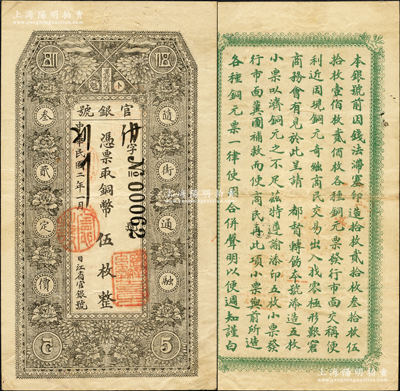 上海陽明拍賣
伍
伍
官銀號
隨街通融
叁貳定價
字
No 000062
號
憑票取銅幣伍枚整
中華民國二年
月
日江省官銀號
5
5
本銀號前因錢法滯塞印造拾枚貳拾枚叁拾枚伍
拾枚壹佰枚貳佰枚各種銅元票發行市面交稱便
利近因現銅元奇絀商民交易出入找零極形艱窘
商務會有見於此呈請 都督轉飭本號添造五枚
小票以濟銅元之不足茲特遵諭添印五枚小票發
行市面冀圖補救而便商民再此項小票與前所造
各種銅元票一律使用合併聲明以便週知謹白